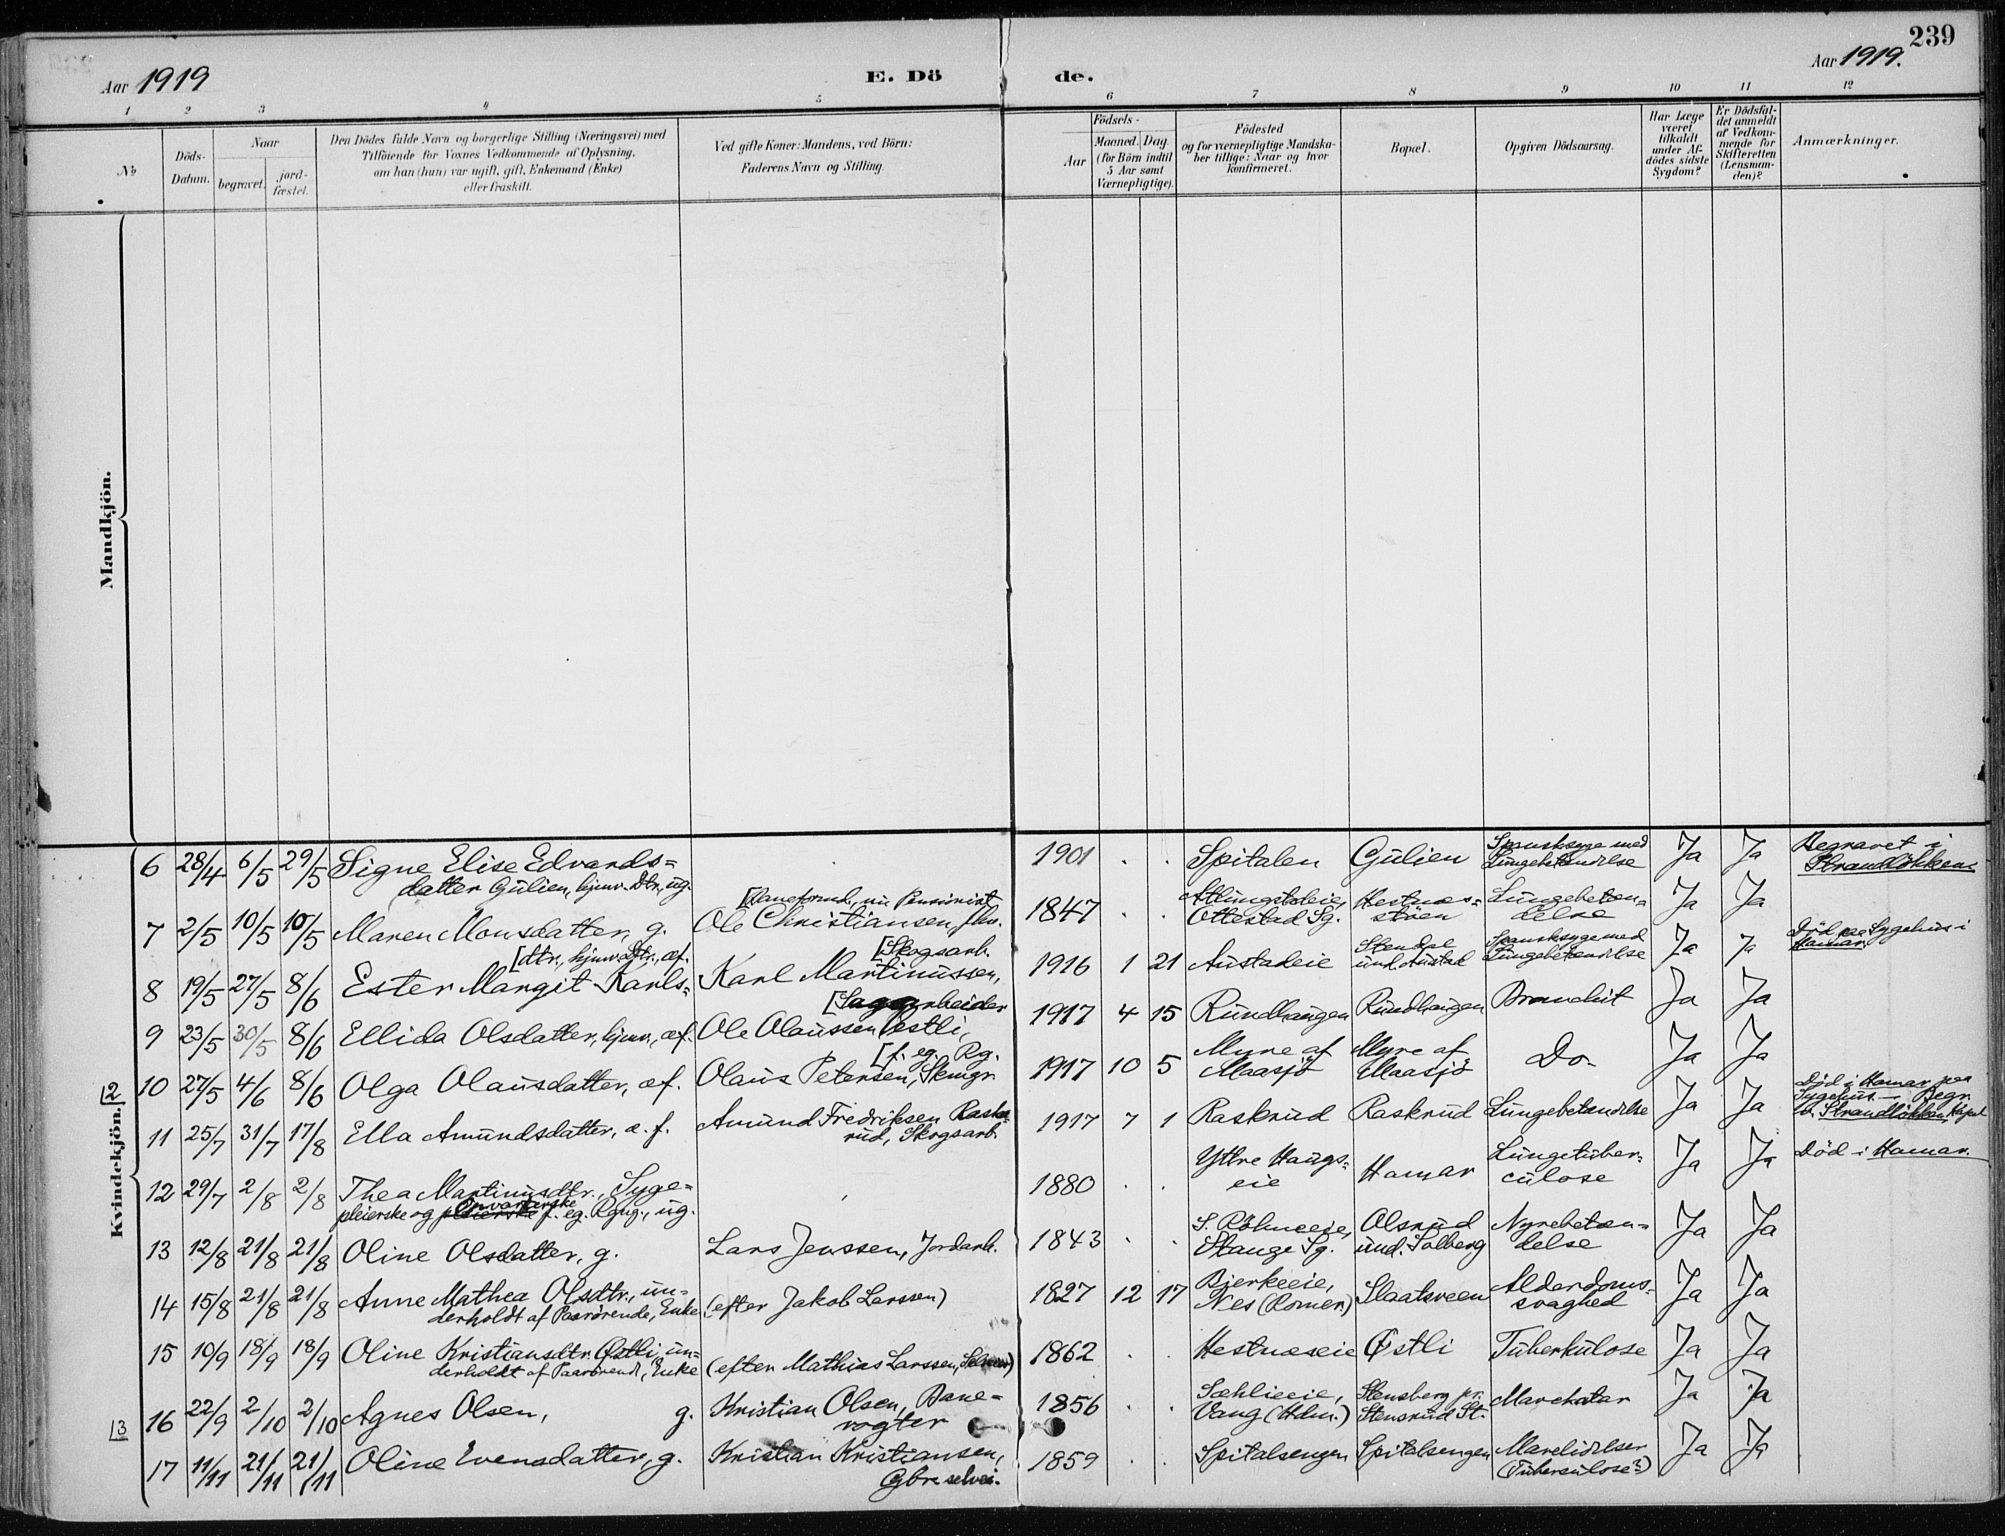 239
Aar 1919
E. Dö
de.
Aar 1919.
1 2 3 4 5 6 7 8 9 10 11 12
No
Döds-Datum.
Naar
begravet. jord-fæstet.
Den Dödes fulde Navn og borgerlige Stilling (Næringsvei) med
Tilföiende for Voxnes Vedkommende af Oplysning,
om han (hun) var ugift, gift, Enkemand (Enke)
eller fraskilt.
Ved gifte Koner: Mandens, ved Börn:
Faderens Navn og Stilling.
Födsels-
Aar Maaned. Dag.
(for Börn indtil
5 Aar samt
Værnepligtige).
Födested
og for værnepligtige Mandska-
ber tillige: Naar og hvor
konfirmeret.
Bopæl.
Opgiven Dödsaarsag.
Har Læge
været
tilkaldt
under Af-
dödes sidste
Sygdom?
Er Dödsfal-
det anmeldt
af Vedkom-
mende for
Skifteretten
(Lensman-
den)?
Anmærkninger.
Mandkjön.
Kvindekjön.
6 28/4 6/5 29/5 Signe Elise Edvards=
datter Gulien, hjmv. Dtr., ug. 1901 . . Spitalen Gulien Spansksyge med
Lungebetændelse Ja Ja Begravet i
Strandløkken
7 2/5 10/5 10/5 Maren Monsdatter, g. Ole Christiansen,
[Baneformd., nu Pensionist 1847 . .
Ottestad Sg. Hestnæs=
støen Lungebetæn=
delse Ja Ja
8 19/5 27/5 8/6 Ester Margit Karls=
[dtr., hjmv. Dtr., æf. Karl Martinussen,
[Skogsarb. 1916 1 21 Austadeie
und. Austad Spansksyge med
Lungebetændelse Ja Ja Död paa Sygehus i
Hamar
9 23/5 30/5 8/6 Ellida Olsdatter, hjmv., æf. Ole Olaussen Østli,
[Sagarbeider 1917 4 15 Rundhaugen Rundhaugen Bronchit Ja Ja
2 10 27/5 4/6 8/6 Olga Olausdatter, æf. Olaus Petersen,
[f. eg. Rg. 1917 10 5 Myre af
Maasjö Myre af
Maasjö Do. Ja Ja
11 25/7 31/7 17/8 Ella Amundsdatter, æ. f. Amund Fredriksen Rask=
rud, Skogsarb. 1917 7 1 Raskrud Raskrud Lungebetændelse Ja Ja Död i Hamar paa
Sygehus. Begr.
v. Strandløkken Kapel
12 29/7 2/8 2/8 Thea Martinusdtr., Syge=
pleierske og f. eg. Rgng., ug. 1880 . . Ytre Haugs=
eie Hamar Lungetuber=
culose Ja Ja Död i Hamar.
13 12/8 21/8 21/8 Oline Olsdatter, g. Lars Jenssen, Jordarb. 1843 . .
Stange Sg. Olsrud
und. Solberg Nyrebetæn=
delse Ja Ja
14 15/8 21/8 21/8 Anne Mathea Olsdtr., un=
derholdt af Paarørende, Enke (efter Jakob Larssen) 1827 12 17 Bjerkeeie,
Nes (Romer.) Slaatsveen Alderdoms=
svaghed Ja Ja
15 10/9 18/9 18/9 Oline Kristiansdtr. Østli, un=
derholdt af Paarørend., Enke (efter Mathias Larssen, ) 1862 . . Hestnæseie Østli Tuberkulose Ja Ja
3 16 22/9 2/10 2/10 Agnes Olsen, g. Kristian Olsen, Bane=
vogter 1856 . . Sæhlieeie,
Vang (Hdm.) Stensberg pr.
Stensrud St. Mavekatar Ja Ja
17 11/11 21/11 21/11 Oline Evensdatter, g. Kristian Kristiansen,
Gbr. selvei. 1859 . . Spitalsengen Spitalsengen Mavelidelser
(Tuberculose?) Ja Ja